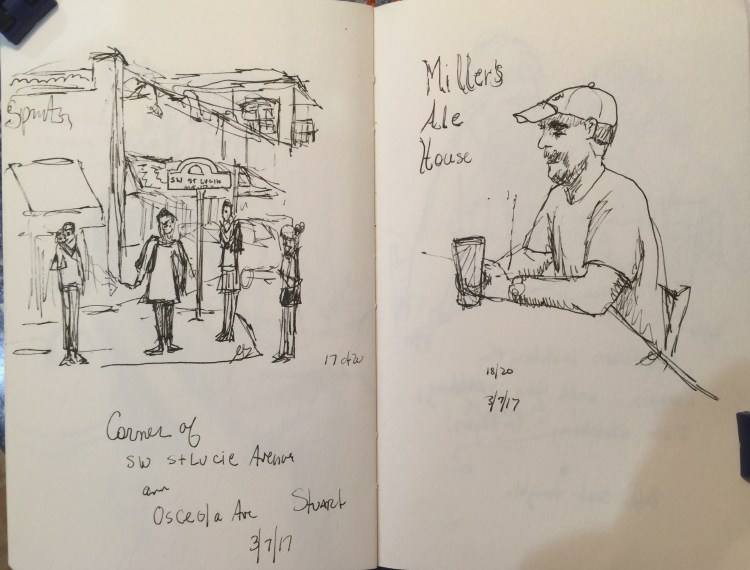 SW ST LUCIE
Corner of
SW St Lucie Avenue
Osceola Ave
STUART
3/7/17
Miller's
Ale
House
18/20
3/7/17